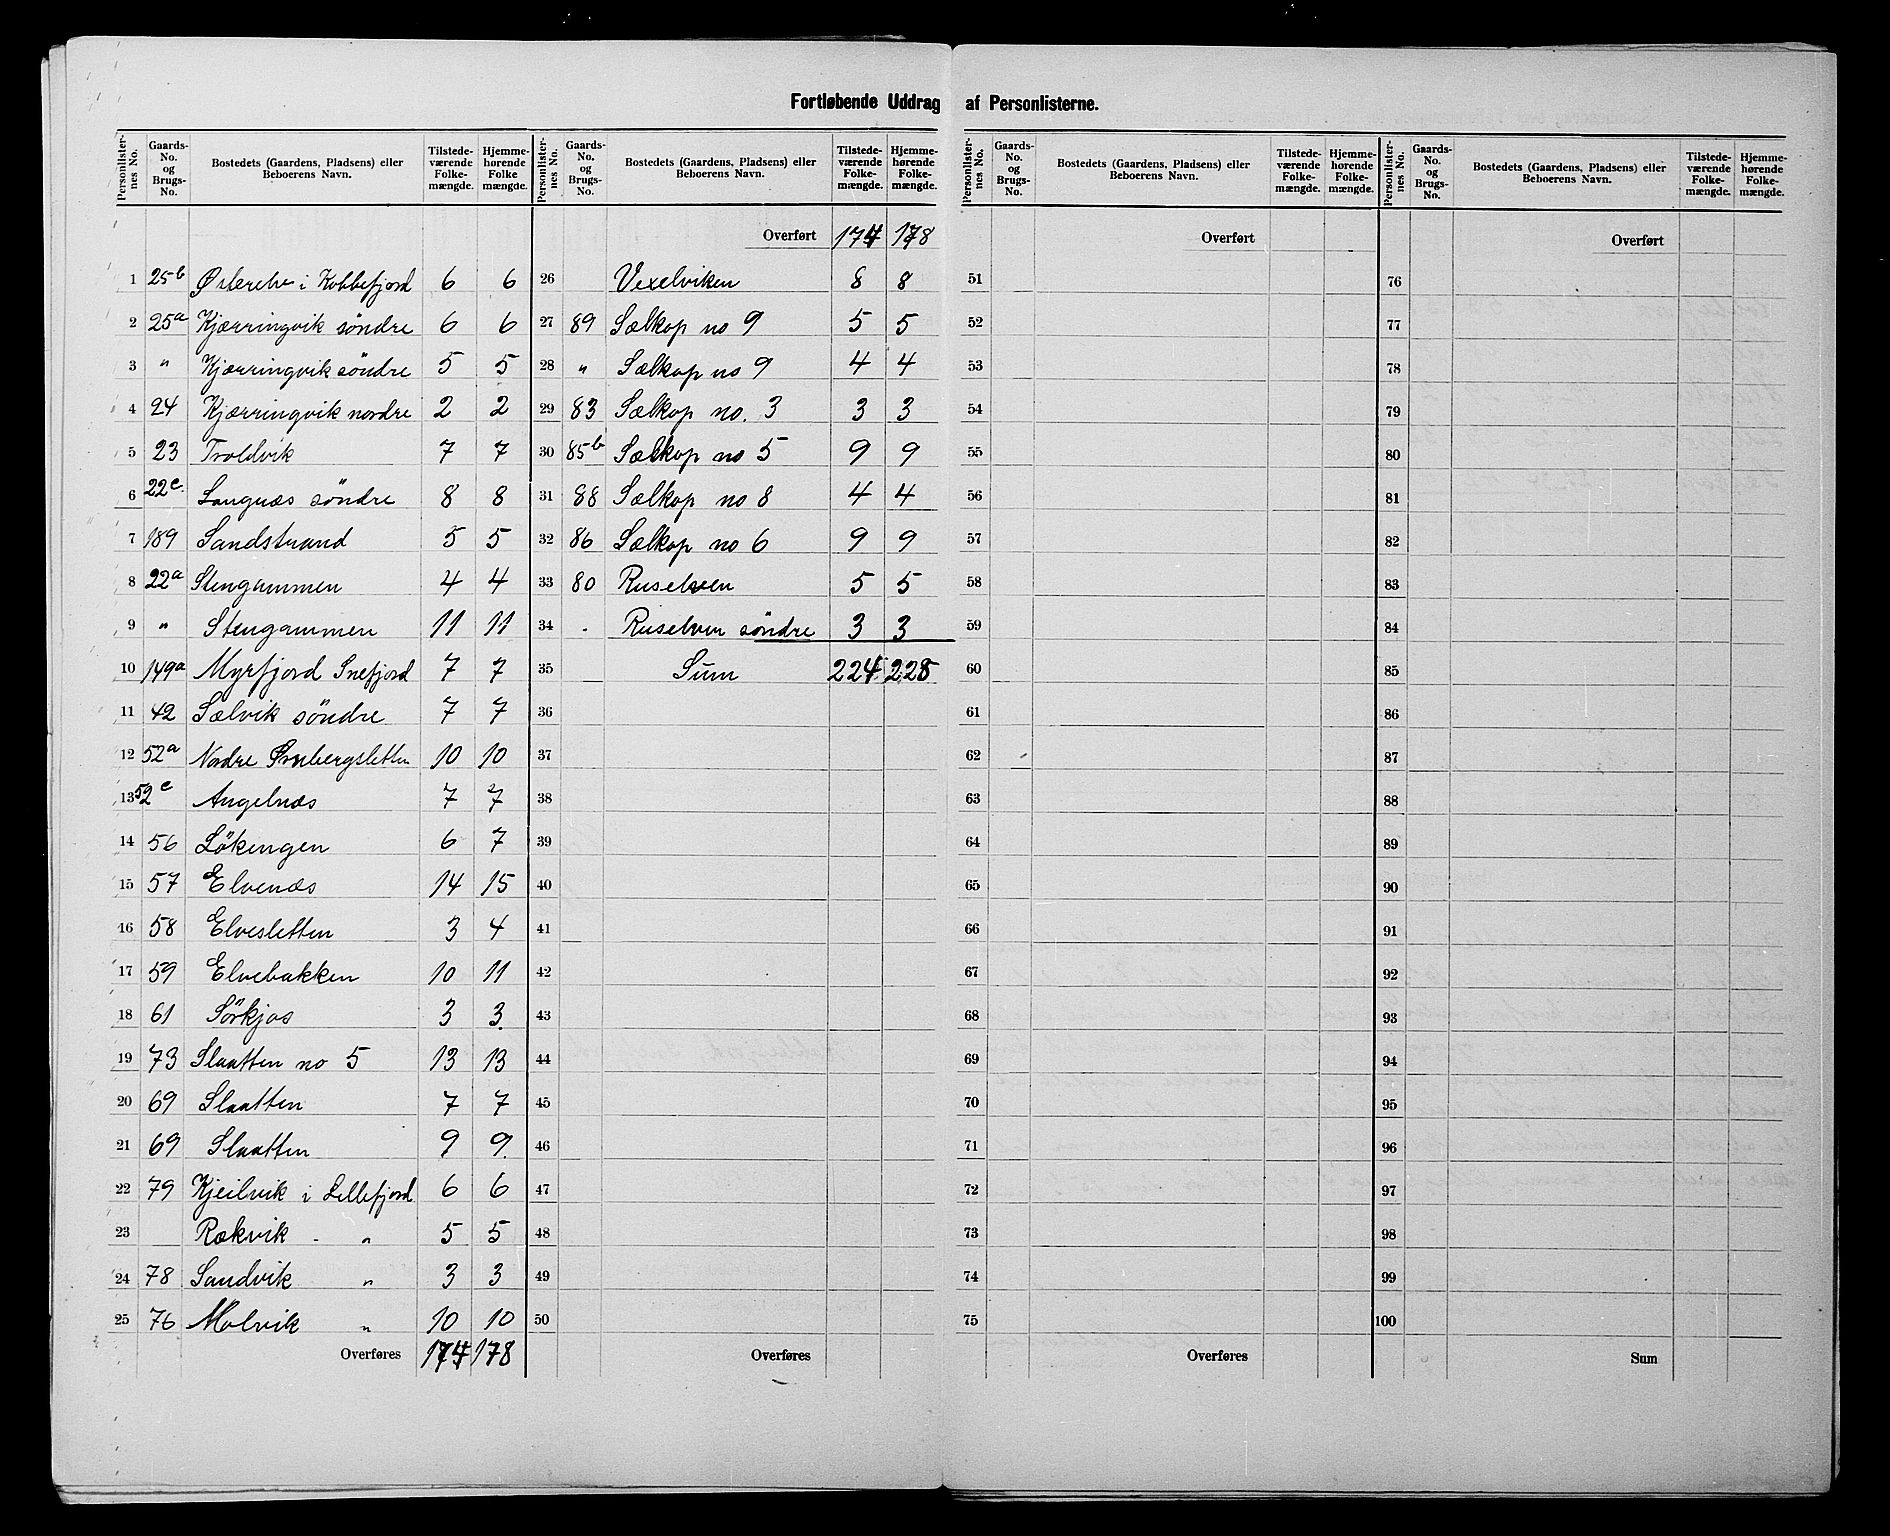 Fortløbende Uddrag af Personlisterne.
Personlister-nes No. | Gaards-No. og Brugs-No. | Bostedets (Gaardens, Pladsens) eller Beboerens Navn. | Tilstede-værende Folke-mængde. | Hjemme-hørende Folke mængde.
1 25b Østerelv i Kobbefjord 6 6
2 25a Kjærringvik söndre 6 6
3 " Kjærringvik söndre 5 5
4 24 Kjærringvik nordre 2 2
5 23 Troldvik 7 7
6 22c. Langnæs söndre 8 8
7 189 Sandstrand 5 5
8 22a Stengammen 4 4
9 " Stengammen 11 11
10 149a Myrfjord Snefjord 7 7
11 42 Sælvik söndre 7 7
12 52a Nordre 10 10
13 52c Angelnæs 7 7
14 56 Lökengen 6 7
15 57 Elvenæs 14 15
16 58 Elvesletten 3 4
17 59 Elvebakken 10 11
18 61 Sörkjos 3 3.
19 73 Slaatten no 5 13 13
20 69 Slaatten 7 7
21 69 Slaatten 9 9.
22 79 Kjeilvik i Lillefjord 6 6
23 Rækvik - " 5 5
24 78 Sandvik " 3 3
25 76 Molvik " 10 10
Overføres 174 178
Personlister-nes No. | Gaards-No. og Brugs-No. | Bostedets (Gaardens, Pladsens) eller Beboerens Navn. | Tilstede-værende Folke-mængde. | Hjemme-hørende Folke-mængde.
Overført 174 178
26 Vexelviken 8 8
27 89 Sælkop no 9 5 5
28 " Sælkop no 9 4 4
29 83 Sælkop no. 3 3 3
30 85b Sælkop no 5 9 9
31 88 Sælkop no 8 4 4
32 86 Sælkop no 6 9 9
33 80 Ruselven 5 5
34 . Ruselven söndre 3 3
35 Sum 224 228
36
37
38
39
40
41
42
43
44
45
46
47
48
49
50
Overføres
Personlister-nes No. | Gaards-No. og Brugs-No. | Bostedets (Gaardens, Pladsens) eller Beboerens Navn. | Tilstede-værende Folke-mængde. | Hjemme-hørende Folke-mængde.
Overført
51
52
53
54
55
56
57
58
59
60
61
62
63
64
65
66
67
68
69
70
71
72
73
74
75
Overføres
Personlister-nes No. | Gaards-No. og Brugs-No. | Bostedets (Gaardens, Pladsens) eller Beboerens Navn. | Tilstede-værende Folke-mængde. | Hjemme-hørende Folke-mængde.
Overført
76
77
78
79
80
81
82
83
84
85
86
87
88
89
90
91
92
93
94
95
96
97
98
99
100
Sum